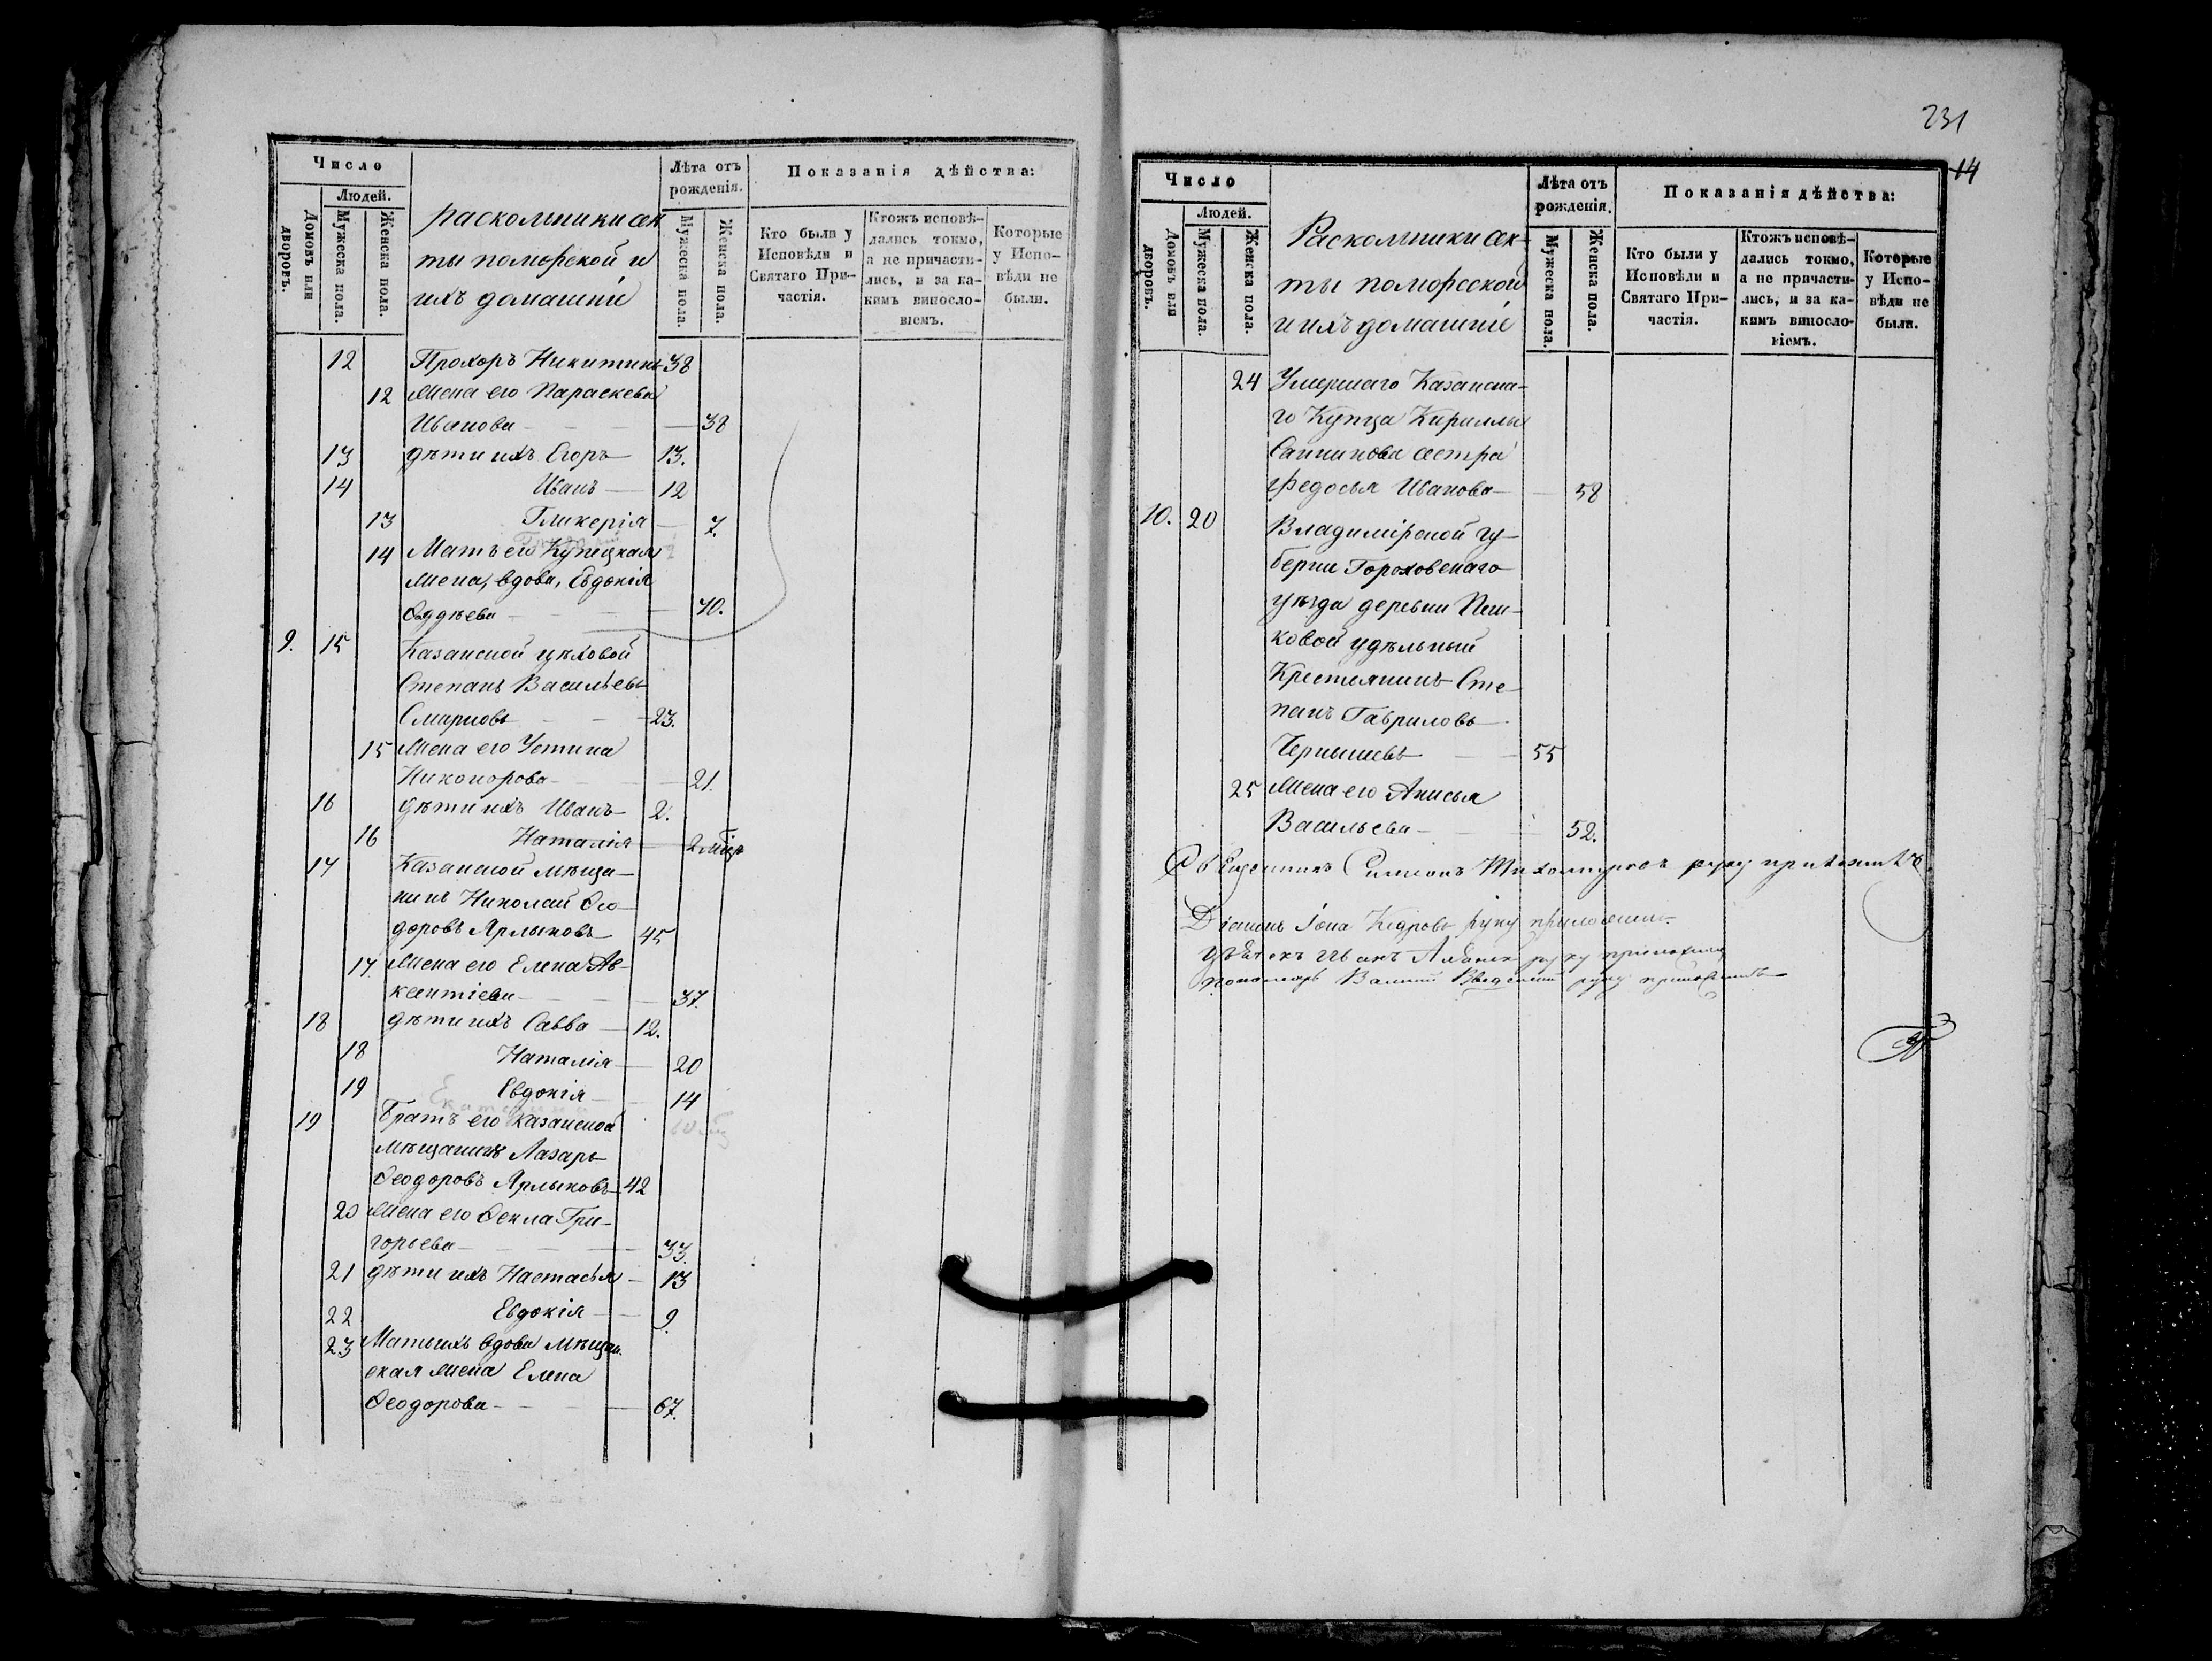 Число
Людей.
Домовъ или дворовъ.
Мужеска пола.
Женска пола.
раскольники сек
ты поморской и
ихъ домашніе
Лѣта отъ рожденія.
Мужеска пола.
Женска пола.
Показанія дѣйства:
Кто были у Исповѣди и Святаго Причастія.
Ктожъ исповѣдались токмо, а не причастились, и за какимъ винословіемъ.
Которые у Исповѣди не были.
12 Прохоръ Никитинъ 38
12 Жена его Параскева
Иванова 38
13 дѣти ихъ Егоръ 13.
14 Иванъ 12
13 Гликерія 7.
14 Мать его Купецкая
жена, вдова, Евдокія
Ѳаддѣева 70.
9. 15 Казанской цѣховой
Степанъ Васильевъ
23.
15 Жена его Устина
Никонорова 21.
16 дѣти ихъ Иванъ 2.
16 Наталія 2 мѣц
17 Казанской мѣща-
нинъ Николай Ѳео-
доровъ Ярлыковъ 45
17. Жена его Елена Ав-
ксентіева 37.
18 дѣти ихъ Савва 12.
18 Наталія 20
19 Евдокія 14
19 Братъ его Казанской
Мѣщанинъ Лазарь
Ѳеодоровъ Ярлыковъ 42
20 Жена его Ѳекла Гри-
горьева 33.
21 дѣти ихъ Настасья 13
22 Евдокія 9.
23 Мать ихъ вдова Мѣщан.
ская жена Елена
Ѳеодорова 67.
231
14
Число
Людей.
Домовъ или дворовъ.
Мужеска пола.
Женска пола.
Раскольники сек-
ты поморской
и ихъ домашніе
Лѣта отъ рожденія.
Мужеска пола.
Женска пола.
Показанія дѣйства:
Кто были у Исповѣди и Святаго Причастія.
Ктожъ исповѣдались токмо, а не причастились, и за какимъ винословіемъ.
Которые у Исповѣди не были.
24 Умершаго Казанска-
го Купца Кириллы
Санникова сестра
Федосья Иванова 58
10. 20 Владимірской гу-
берніи Гороховскаго
уѣзда деревни Пеш-
ковой удѣльный
Крестьянинъ Сте-
панъ Гавриловъ
Чернышевъ 55
25 Жена его Анисья
Васильева 52.
Священникъ Симеонъ Тихомировъ руку приложилъ
Діаконъ Іона Кедровъ руку приложилъ.
Иванъ руку приложилъ
пономарь Введенскій руку приложилъ